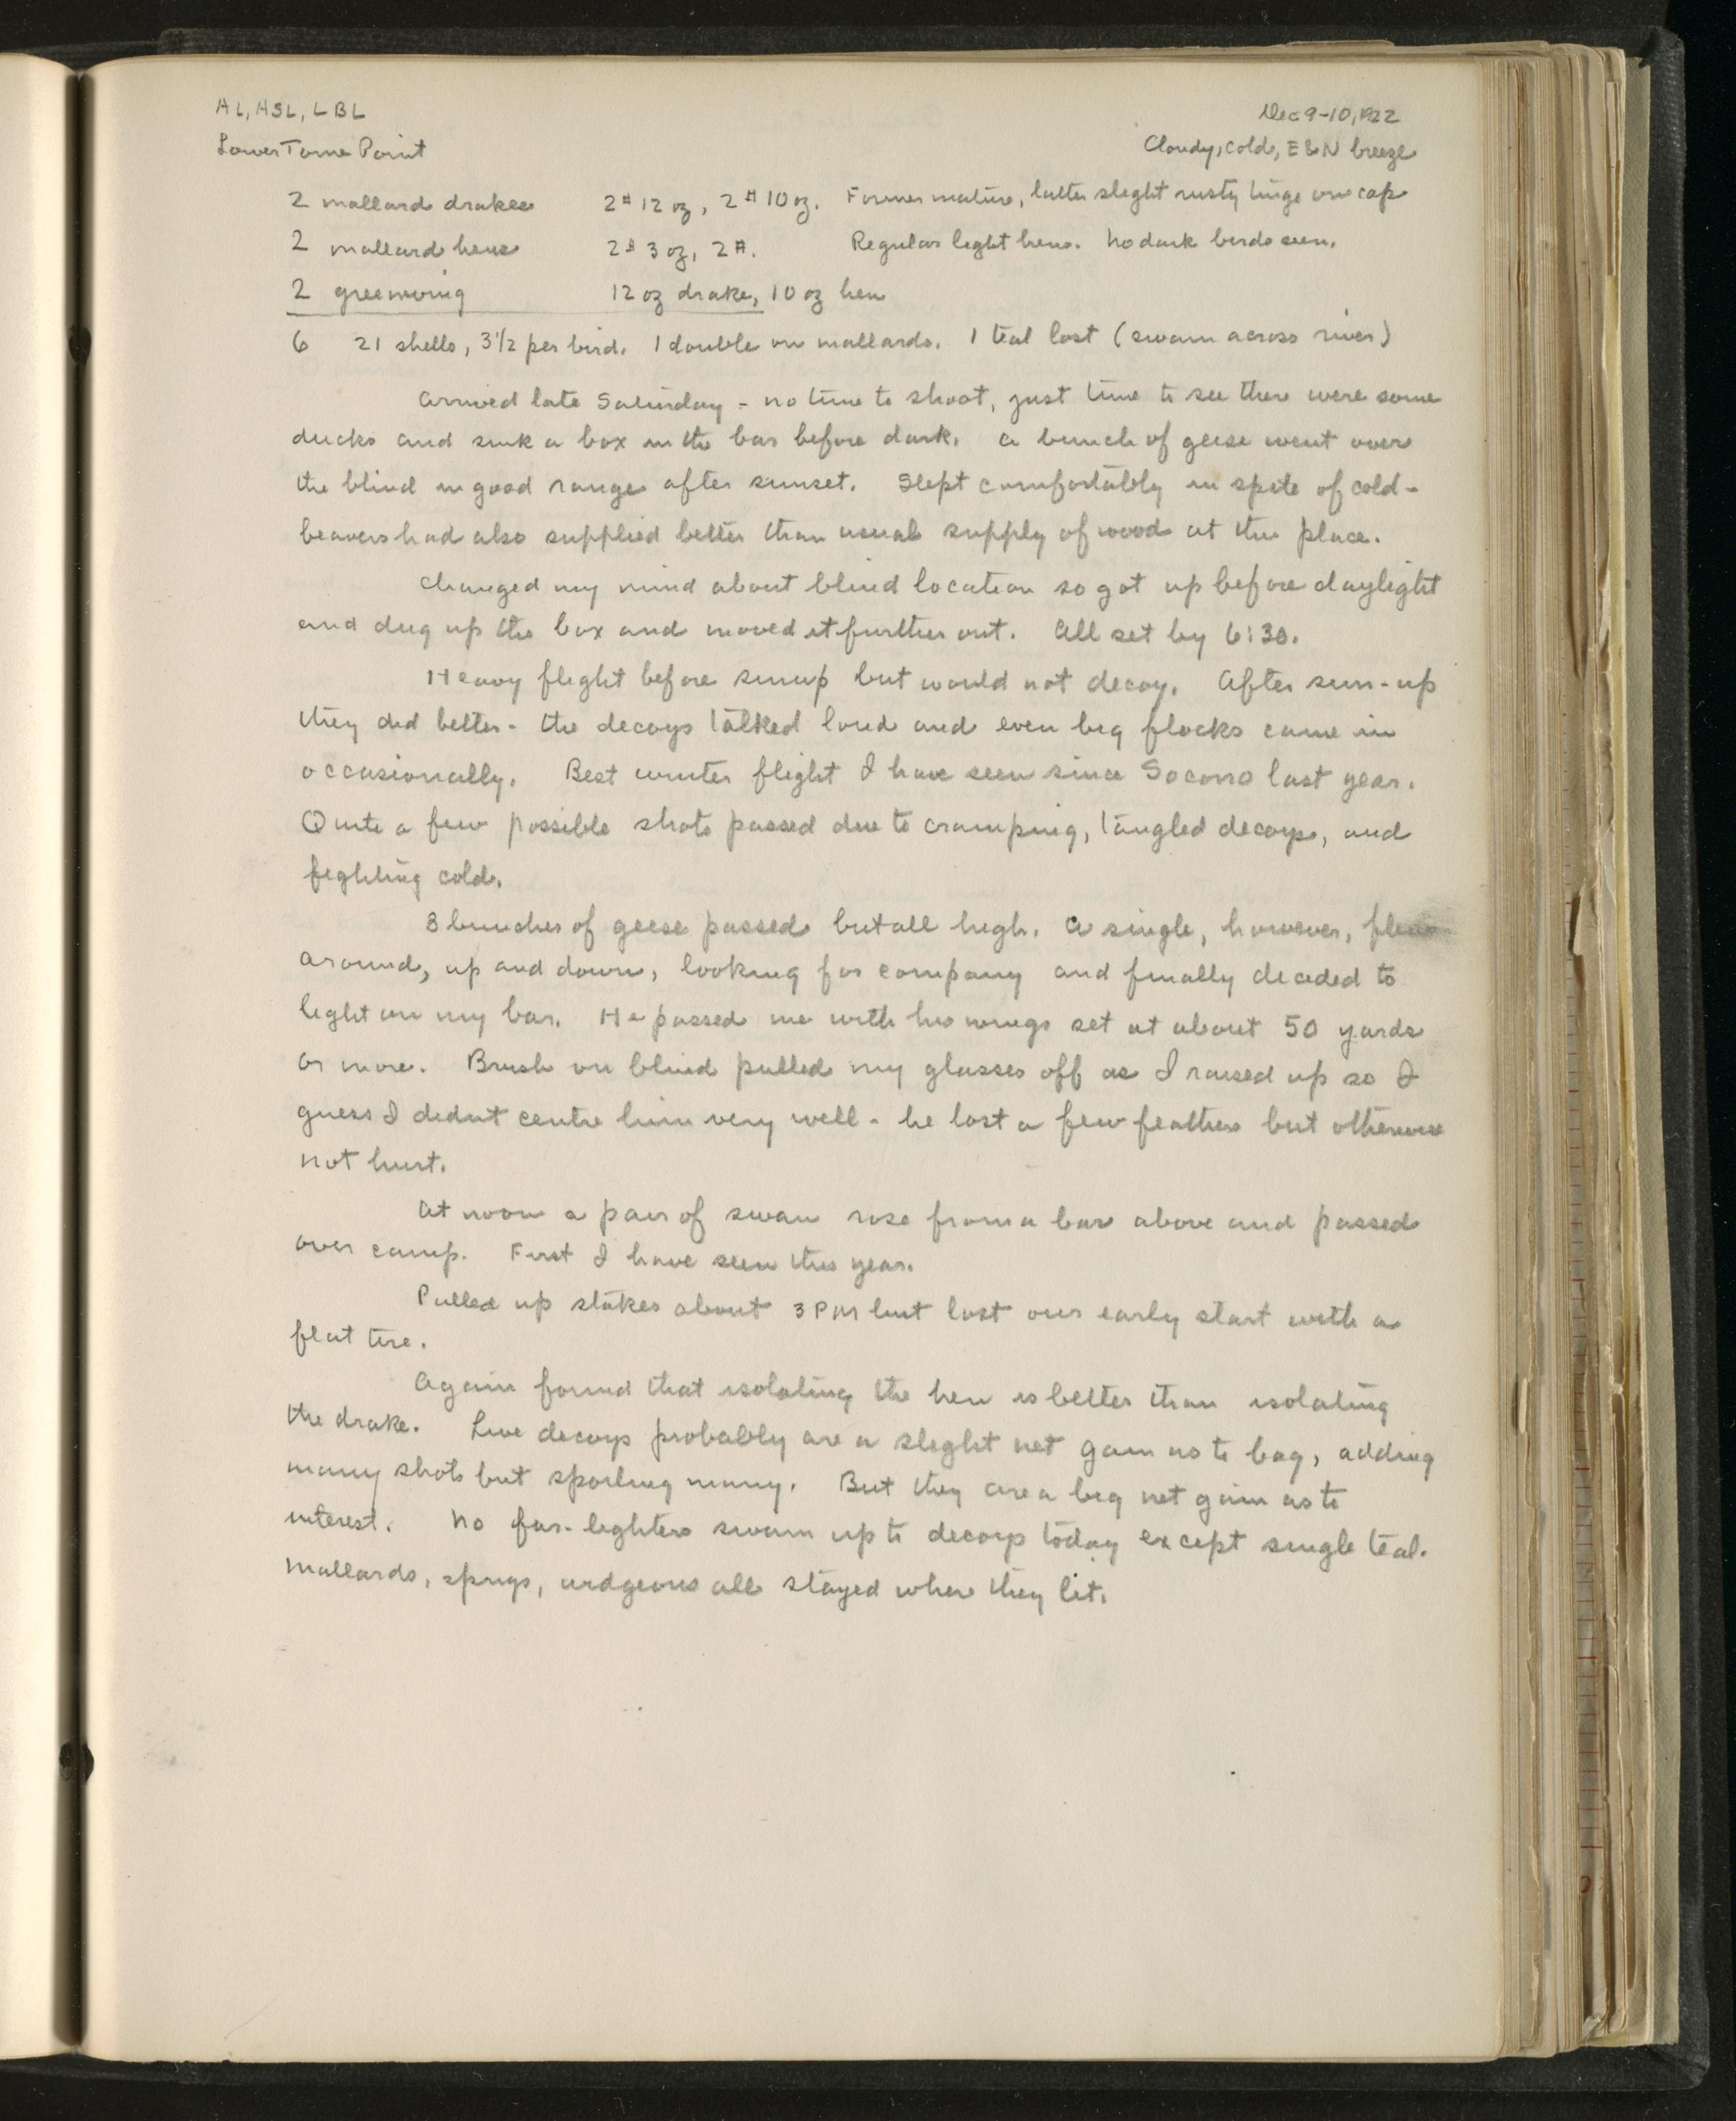 AL, HSL, LBL
Dec 9-10, 1922
Lower Tome Point
Cloudy, cold, E & N breeze
2 mallard drakes 2# 12 oz, 2# 10 oz. Former mature, latter slight rusty tinge on cap
2 mallard hens 2# 3 oz, 2#. Regular light hens. No dark birds seen.
2 greenwing 12 oz drake, 10 oz hen
6 21 shells, 3 1/2 per bird. 1 double on mallards. 1 teal lost (swam across river)
Arrived late Saturday - no time to shoot, just time to see there were some
ducks and sink a box in the bar before dark. A bunch of geese went over
the blind in good range after sunset. Slept comfortably in spite of cold -
beavers had also supplied better than usual supply of wood at the place.
Changed my mind about blind location so got up before daylight
and dug up the box and moved it further out. All set by 6:30.
Heavy flight before sunup but would not decoy. After sun-up
they did better - the decoys talked loud and even big flocks came in
occasionally. Best winter flight I have seen since Socorro last year.
Quite a few possible shots passed due to cramping, tangled decoys, and
fighting cold.
3 bunches of geese passed but all high. A single, however, flew
around, up and down, looking for company and finally decided to
light on my bar. He passed me with his wings set at about 50 yards
or more. Brush on blind pulled my glasses off as I raised up so I
guess I didnt centre him very well - he lost a few feathers but otherwise
not hurt.
At noon a pair of swan rose from a bar above and passed
over camp. First I have seen this year.
Pulled up stakes about 3 PM but lost our early start with a
flat tire.
Again found that isolating the hen is better than isolating
the drake. Live decoys probably are a slight net gain as to bag, adding
many shots but spoiling many. But they are a big net gain as to
interest. No far-lighters swam up to decoys today except single teal.
Mallards, sprigs, widgeons all stayed where they lit.